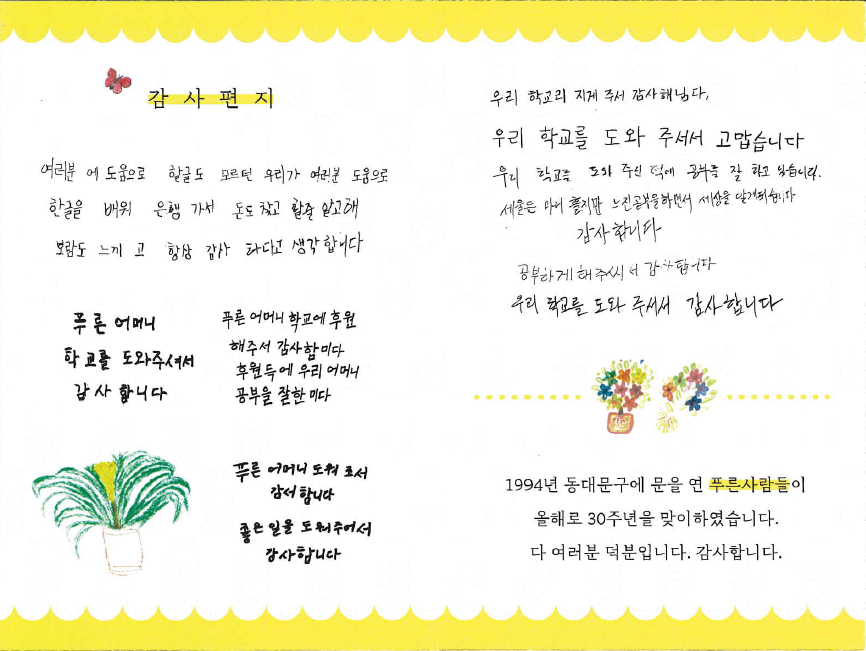 감사편지
여러분 에 도움으로 한글도 모르던 우리가 여러분 도움으로
한글을 배워 은행 가서 돈도 찾고 할줄 알고해
보람도 느끼 고 항상 감사 하다고 생각합니다
푸른 어머니
학교를 도와주셔서
감사 합니다
푸른 어머니 학교에 후원
해주서 감사함미다
후원득에 우리 어머니
공부을 잘한미다
푸른 어머니 도워 조서
감서합니다
좋은 일을 도워주어서
감사합니다
우리 학교리 지게 주서 감사해님다,
우리 학교를 도와 주셔서 고맙습니다
우리 학교를 도와 주신 덕에 공부를 잘 하고 있습니다.
세월은 마니 흘지만 느진공부을하면서 세상을 알게되습니다
감사합니다
공부하게해주씨서 감사합니다
우리 학교를 도와 주셔서 감사합니다
1994년 동대문구에 문을 연 푸른사람들이
올해로 30주년을 맞이하였습니다.
다 여러분 덕분입니다. 감사합니다.